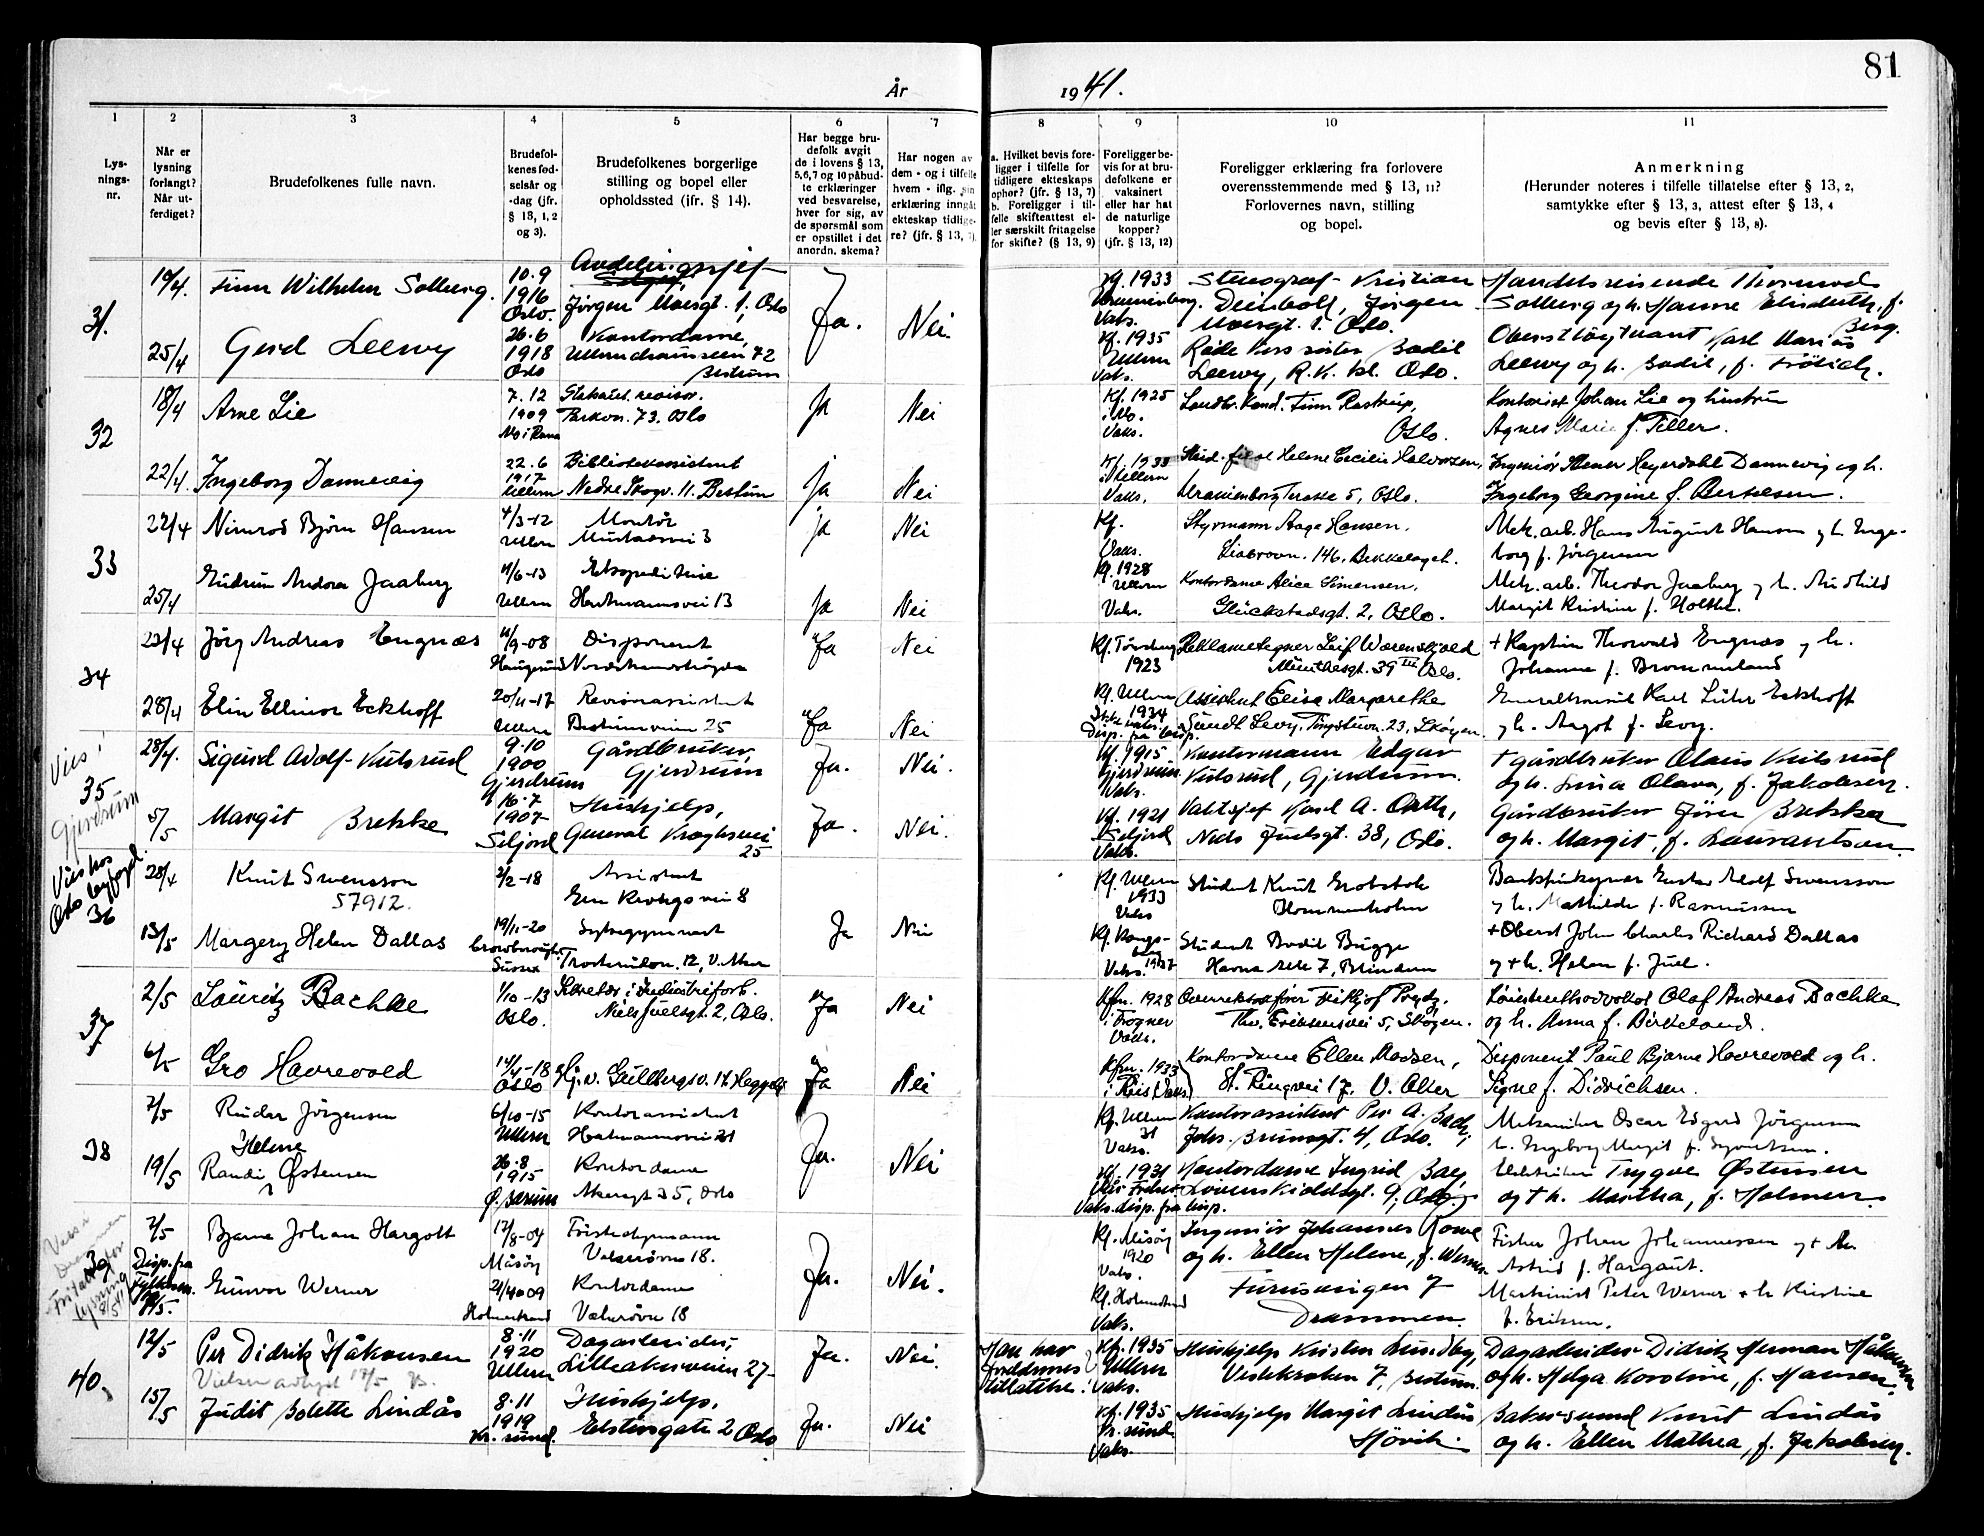 81
År 1941.
1 2 3 4 5 6 7 8 9 10 11
Lys-
nings-
nr.
Når er
lysning
forlangt?
Når ut-
ferdiget?
Brudefolkenes fulle navn.
Brudefol-
kenes fød-
selsår og
-dag (jfr.
§ 13, 1, 2
og 3).
Brudefolkenes borgerlige
stilling og bopel eller
opholdssted (ifr. § 14).
Har begge bru-
defolk avgit
de i lovens § 13,
5,6,7 og 10 påbud-
te erklæringer
ved besvarelse,
hver for sig, av
de spørsmål som
er opstillet i det
anordn. skema?
Har nogen av
dem - og i tilfelle
hvem - iflg. sin
erklæring inngåt
ekteskap tidlige-
re? (jfr. § 13, 7).
a. Hvilket bevis fore-
ligger i tilfelle for
tidligere ekteskaps
ophør? (jfr. § 13, 7)
b. Foreligger i til-
felle skifteattest el-
ler særskilt fritagelse
for skifte? (§ 13, 9)
Foreligger be-
vis for at bru-
defolkene er
vaksinert
eller har hat
de naturlige
kopper?
(jfr. § 13, 12)
Foreligger erklæring fra forlovere
overensstemmende med § 13, 11?
Forlovernes navn, stilling
og bopel.
Anmerkning
(Herunder noteres i tilfelle tillatelse efter § 13, 2,
samtykke efter § 13, 3, attest efter § 13, 4
og bevis efter § 13, 8).
31.
19/4. Finn Wilhelm Solberg. 10.9 1916 Oslo. Avdelingssjef Jørgen Moesgt. 1, Oslo Ja. Nei. Kf. 1933 Vaks. Stenograf Kristian Deinboll, Jørgen Moesgt. 1. Oslo. Handelsreisende Thormod Solberg og h. Hanne Elisabeth, f. Berg.
25/4 Gerd Leewy 26.6 1918 Oslo Kontordame, Ullernchausseen 72 Bestum Kf. 1935 Ullern Vaks. Røde Kors søster Bodil Leewy, R.K. kl. Oslo. Oberstløytnant Karl Marius Leewy og h. Bodil, f. Frölich.
32
18/4 Arne Lie 7.12 1909 Mo i Rana Parkvn. 73. Oslo Ja Nei Kf. 1925 i Mo. Vaks. Landbr. kand. Finn Rastrup, Oslo. Kontorist Johan Lie og hustru Agnes Marie f. Teller.
22/4 Ingeborg Dannevig 22.6 1917 Ullern Biblioteksassistent Nedre Skogv. 11. Bestum Ja Nei Kf. 1933 i Ullern Vaks. Stud. fil. Helene Cecilie Halvorsen, Uranienborg Terasse 5, Oslo. Ingeniør Stener Heyerdahl Dannevig og h. Ingeborg Georgine f. Bertelsen.
33
22/4 Nimrod Bjørn Hansen 4/3-12 Ullern Montør Mustadsvei 3 Ja Nei Kf. Vaks. Styrmann Aage Hansen, Liabrovn. 146. Bekkelaget. Mek. arb. Hans August Hansen og h. Inge-
borg f. Jørgensen
25/4 Gudrun Andora Jaaberg 11/6-13 Ullern Ekspeditrise Hartmannsvei 13 Ja Nei Kf. 1928 Ullern Vaks. Kontordame Alice Simensen, Glückstadsgt. 2, Oslo. Mek. arb. Theodor Jaaberg og h. Margit Kristine f. Holthe.
34
23/4 Jörg Andreas Engnæs 11/9-08 Haugesund Disponent Ja Nei Kf. Tønsberg 1923 Reklametegner Leif Wærenskjold Münthesgt. 39 III Oslo. + Kaptein Thorvald Engnæs og h. Johanne f. Brommeland
28/4 Elin Ellinor Eckhoff 20/11-17 Ullern Revisorassistent Bestumveien 25 Ja Nei Kf. Ullern 1934 Ikke vaks. Disp. fra bisp. Assistent Elisa Margarethe Sundt Levy, Tingstuvn. 23, Skøyen. Generalkonsul Karl Lüder Eckhoff og h. Aagot f. Levy.
Vies i
35
Gjerdrum
28/4. Sigurd Adolf Kulsrud 9.10 1900 Gjerdrum Gårdbruker Gjerdrum Ja. Nei. Kf. 1915 Gjerdrum Vaks. Kontormann Edgar Kulsrud, Gjerdrum. + gårdbruker Olaus Kulsrud og h. Lina Olava, f. Jakobsen.
5/5 Margit Brekke 16.7 1907 Seljord Hushjelp, General Kroghsvei 25 Ja. Nei. Kf. 1921 Seljord Vaks. Vaktsjef Karl A. Orth, Niels Juelsgt. 38, Oslo. Gårdbruker Jörn Brekke og h. Margit, f. Lauvantsen.
Vies hos
Oslo byfogd.
36
28/4 Knut Svensson 57912. 2/2-18 Assistent Gen. Kroghsvei 8 Kf. Ullern 1933 Vaks Student Knut Grobstok Hommenholm Bankfullmektig Adolf Svensson og h. Mathilde f. Rasmussen
13/5 Margery Helen Dallas 19/11-20 Crowborough Sussex Sykegymnast Trosterudvn. 12, V. Aker Ja Nei Kf. Kongs-
berg Vaks. 1937 Student Bodil Bugge Havna Alle 7, Blindern + Oberst John Charles Richard Dallas og + h. Helen f. Juel.
37
2/5 Lauritz Bachke 1/10-13 Oslo. Sekretær i Industriforb. Niels Juelsgt. 2, Oslo. Ja Nei Kfm. 1928 i Frogner Vaks. Overrettssakfører Fritjof Prydz, Th. Eriksensvei 5, Skøyen. Høiesterettsadvokat Olaf Andreas Bachke og h. Anna f. Birkeland.
6/5 Gro Havrevold 14/4-18 Oslo Hj. v. Gulbergsv. 17. Heggeli Ja Nei Kfm. 1933 i Ris (Vaks.) Kontordame Ellen Madsen, St. Ringvei 17, V. Aker Disponent Paul Bjarne Havrevold og h. Signe f. Didrichsen.
38
2/5 Reidar Jörgensen 6/10-15 Ullern Kontorassistent Hartmannsvei 21 Ja. Nei Kf. Ullern 31 Vaks. Kontorassistent Per A. Bach, Johs. Brunsgt. 4, Oslo. Mekaniker Oscar Edgard Jörgensen h. Ingeborg Margit f. Syvertsen.
19/5 Randi Helene Østensen 26.8 1915 Ø. Bærum Kontordame Akersgt 35, Oslo Kf. 1931 Vaks. disp. fra bisp. Kontordame Ingrid Bae, Løvenskioldsgt. 9, Oslo. Elektriker Trygve Østensen og + h. Martha, f. Holmen.
Vies i
Drammen
39
Fritatt for
lysning
2/5 Bjarne Johan Hargott 17/8-04 Måsøy Tristedsmann Vækerøvn 18. Ja. Nei. Kf. Måsøy 1920 Vaks. Ingeniør Johannes Rome og h. Ellen Helene, f. Werner Furusvingen 7 Drammen. Fisker Johan Johannessen og + h. Astrid f. Hargaut.
Disp. fra Fylkesm.
Gunvor Werner 21/4 09 Holmestrand Kontordame Vækerøvn 18 Kf. Holmestrand Vaks. Maskinist Peter Werner + h. Kristine f. Eriksen.
40.
12/5 Per Didrik Håkonsen 8.11 1920 Ullern Dagarbeider, Lilleakerveien 27 Ja. Nei. Han har foreldrenes tillatelse. Kf. 1935 Ullern Vaks. Hushjelp Kirsten Lundby, Vestekroken 7, Bestum. Dagarbeider Didrik Herman Håkonsen og h. Helga Karoline, f. Hansen.
Vielsen avlyst 12/5
15/5 Judit Bolette Lindås 8.11 1919 Kr. sund. Hushjelp, Eilstingate 2 Oslo Ja. Nei Kf. 1935 Kr. sund. Vaks. Hushjelp Margit Lindås Hövik. Baker-svend Knut Lindås og h. Ellen Mathea, f. Jakobsen.